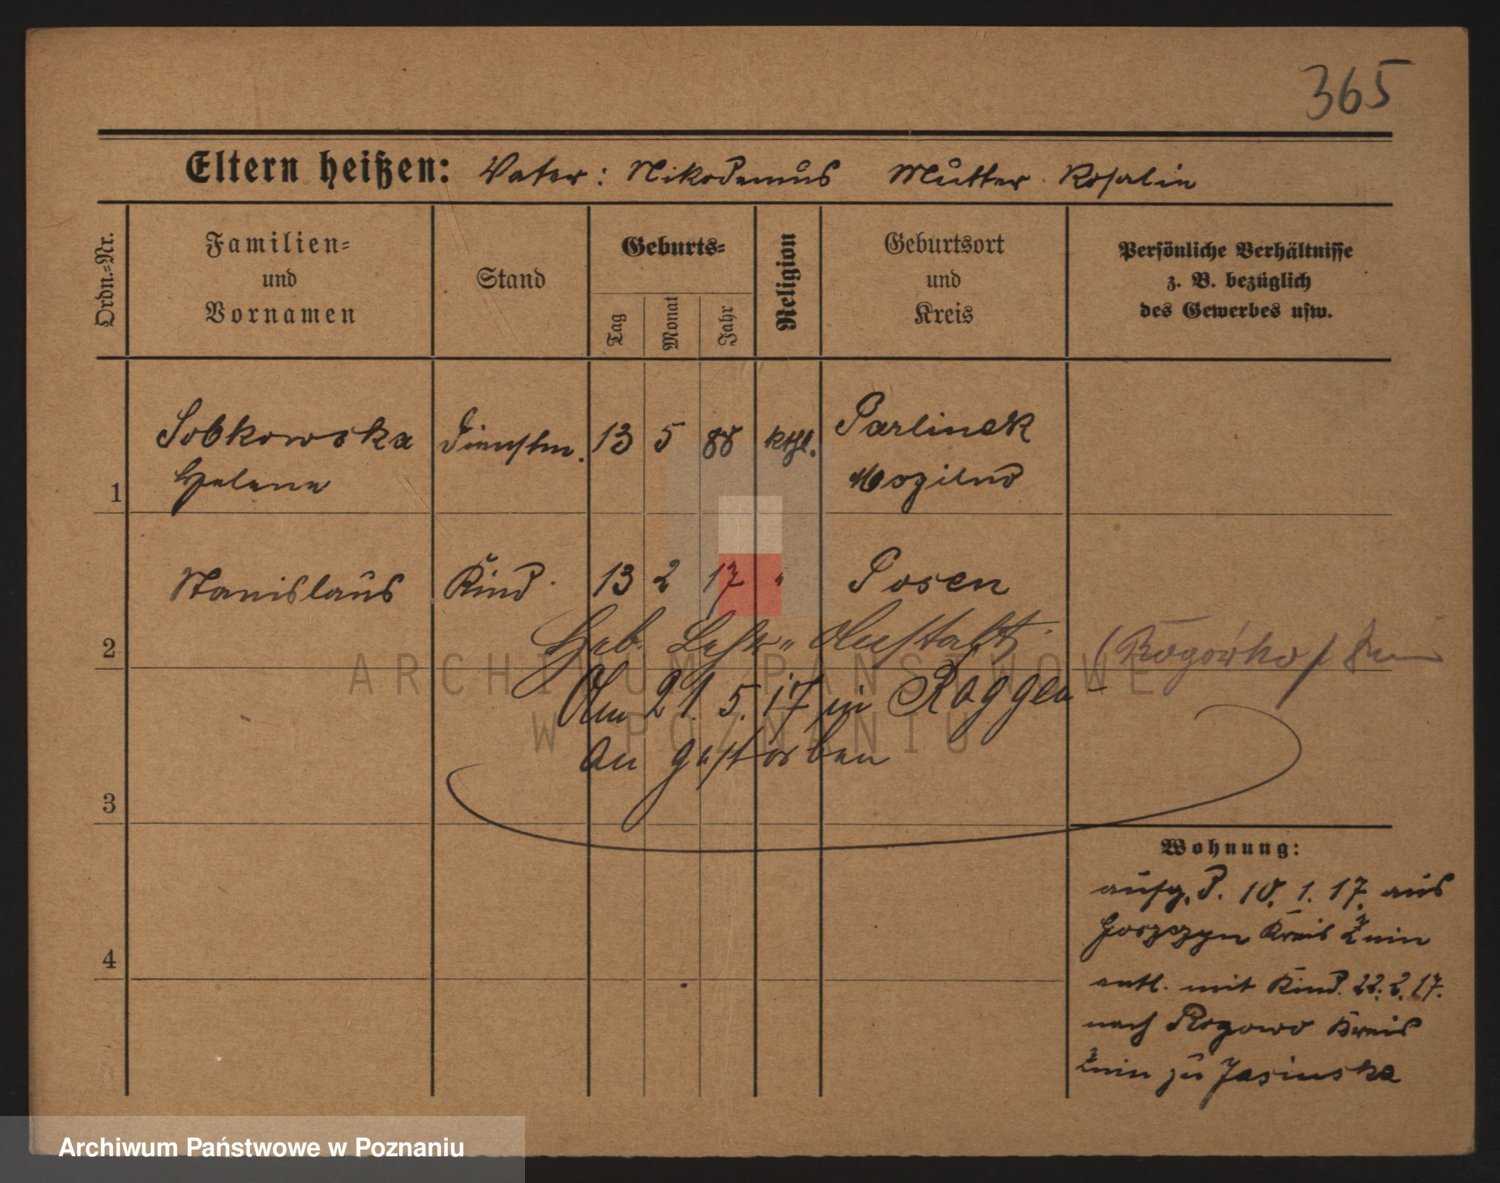 365
Eltern heißen: Vater: Nikodemus Mutter Rosalie
Ordn.=Nr.
Familien=
und
Vornamen
Stand
Geburts=
Tag
Monat
Jahr
Religion
Geburtsort
und
Kreis
Persönliche Verhältnisse
z. B. bezüglich
des Gewerbes usw.
1
Sobkowska
Helene
Dienstm.
13 5 88
kthl.
Parlinek
Mogilno
2
Stanislaus
Kind
13 2 17 "
Posen
Geb. Anstalt
Am 21. 5. 17 in Roggen
an gestorben
3
4
Wohnung:
aufg. d. 10. 1. 17. aus
Gorzyn Kreis Żnin
entl. mit Kind. 22. 2. 17.
nach Rogowo Kreis
Żnin zu Jasinska
ARCHIWUM PAŃSTWOWE
W POZNANIU
Archiwum Państwowe w Poznaniu